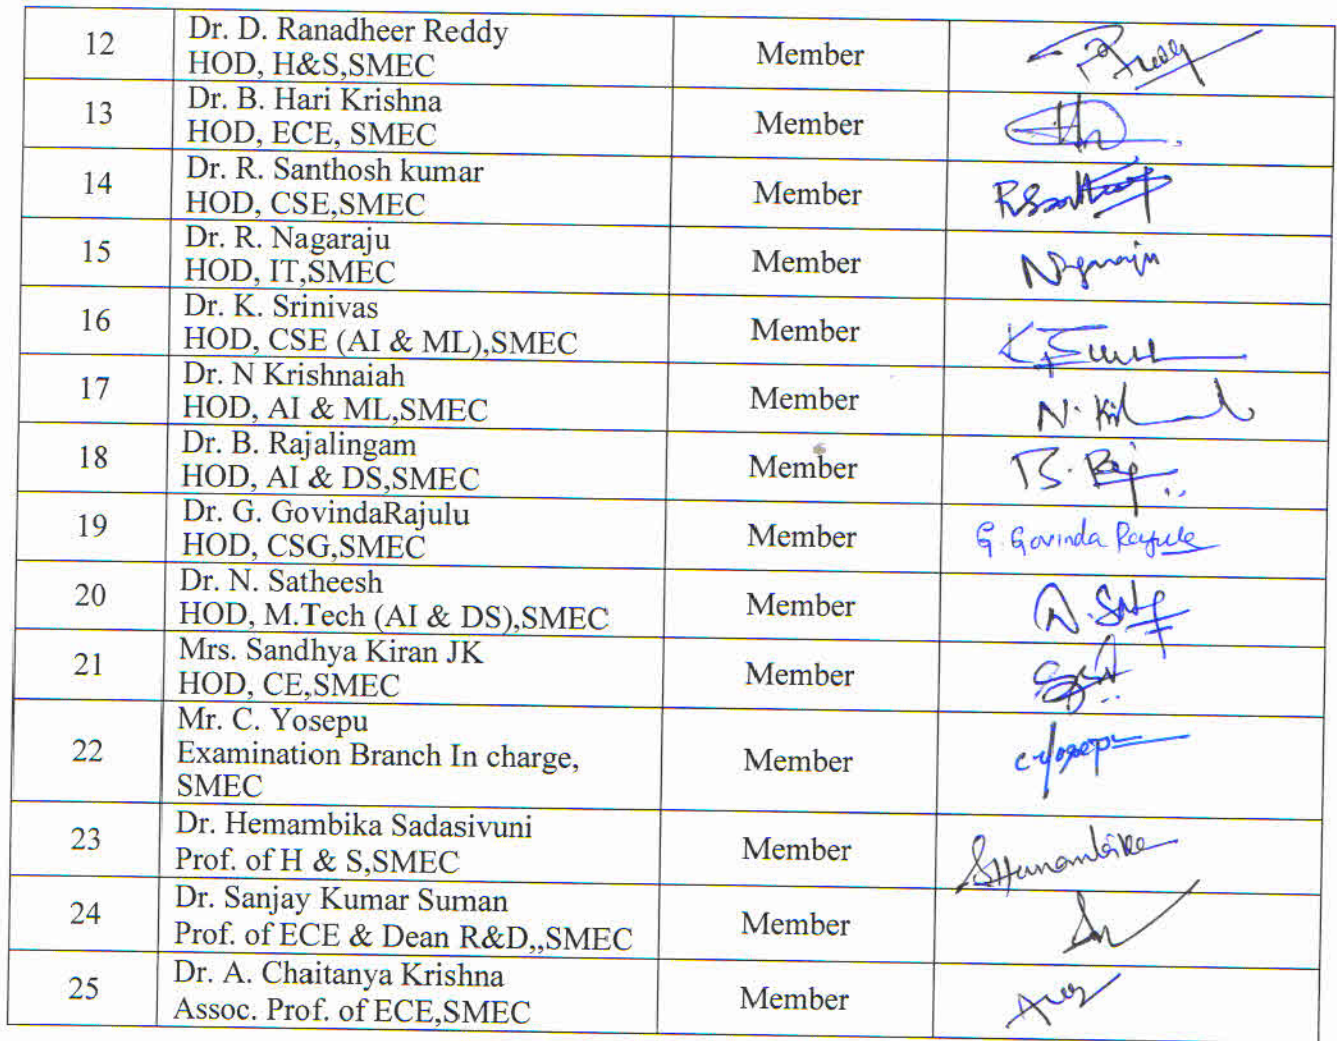 12 Dr. D. Ranadheer Reddy
HOD, H&S,SMEC Member
13 Dr. B. Hari Krishna
HOD, ECE, SMEC Member
14 Dr. R. Santhosh kumar
HOD, CSE,SMEC Member
15 Dr. R. Nagaraju
HOD, IT,SMEC Member Nagaraju
16 Dr. K. Srinivas
HOD, CSE (AI & ML),SMEC Member
17 Dr. N Krishnaiah
HOD, AI & ML,SMEC Member
18 Dr. B. Rajalingam
HOD, AI & DS,SMEC Member
19 Dr. G. GovindaRajulu
HOD, CSG,SMEC Member G. Govinda Rajulu
20 Dr. N. Satheesh
HOD, M.Tech (AI & DS),SMEC Member
21 Mrs. Sandhya Kiran JK
HOD, CE,SMEC Member
22 Mr. C. Yosepu
Examination Branch In charge, Member C Yosepu
SMEC
23 Dr. Hemambika Sadasivuni
Prof. of H & S,SMEC Member SHemambika
24 Dr. Sanjay Kumar Suman
Prof. of ECE & Dean R&D,,SMEC Member
25 Dr. A. Chaitanya Krishna
Assoc. Prof. of ECE,SMEC Member